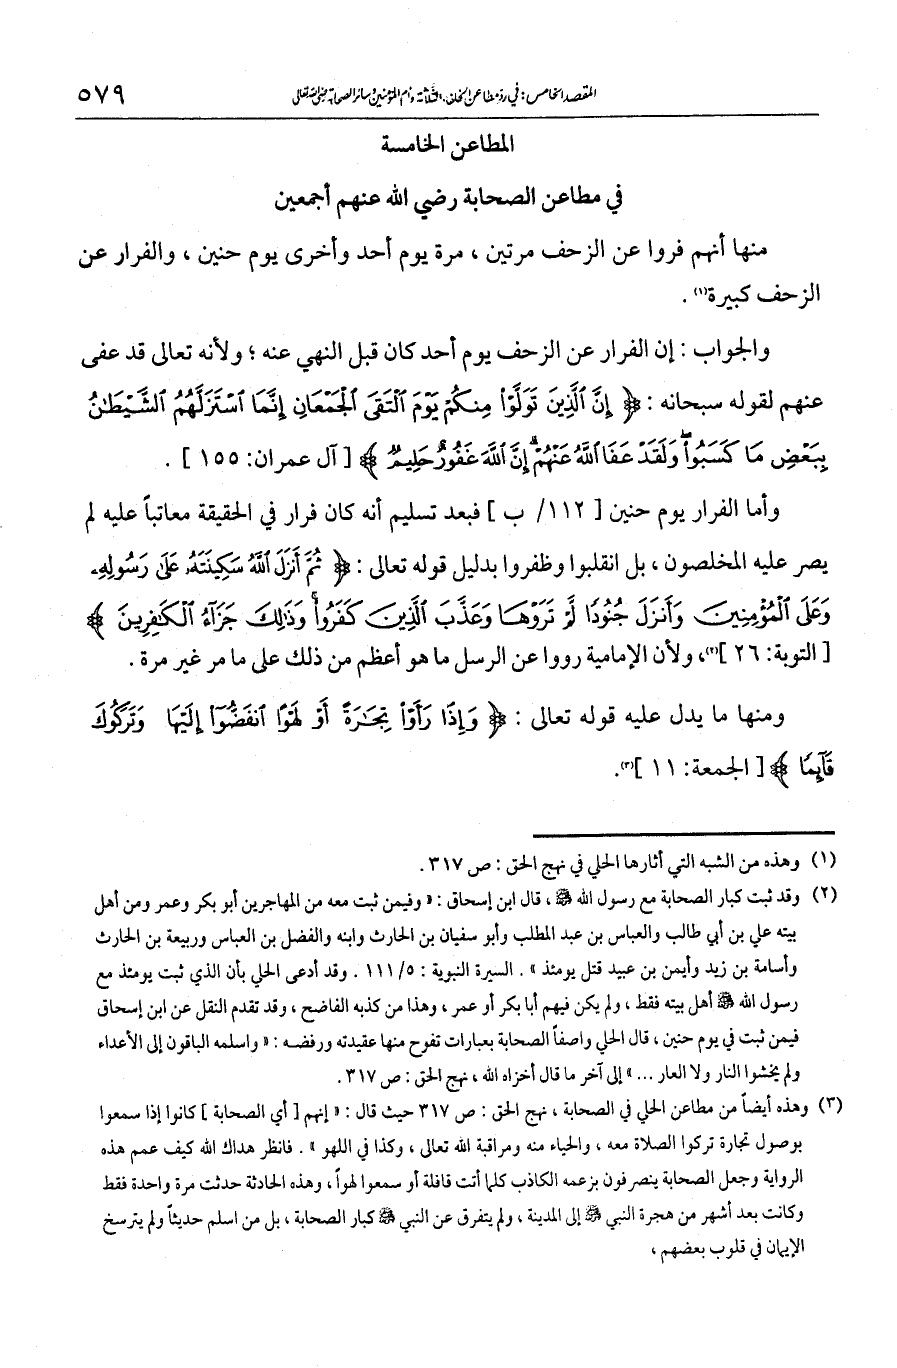 المقصد الخامس: في رد مطاعن الخلفاء الثلاثة وأم المؤمنين وسائر الصحابة رضي الله تعالى ٥٧٩
المطاعن الخامسة
في مطاعن الصحابة رضي الله عنهم أجمعين
منها أنهم فروا عن الزحف مرتين ، مرة يوم أحد وأخرى يوم حنين ، والفرار عن
الزحف كبيرة(١) .
والجواب : إن الفرار عن الزحف يوم أحد كان قبل النهي عنه ؛ ولأنه تعالى قد عفى
عنهم لقوله سبحانه : ﴿ إِنَّ ٱلَّذِينَ تَوَلَّوْا۟ مِنكُمْ يَوْمَ ٱلْتَقَى ٱلْجَمْعَانِ إِنَّمَا ٱسْتَزَلَّهُمُ ٱلشَّيْطَـٰنُ
بِبَعْضِ مَا كَسَبُوا۟ ۖ وَلَقَدْ عَفَا ٱللَّهُ عَنْهُمْ ۗ إِنَّ ٱللَّهَ غَفُورٌ حَلِيمٌ ﴾ [ آل عمران: ١٥٥ ] .
وأما الفرار يوم حنين [ ١١٢/ ب ] فبعد تسليم أنه كان فرار في الحقيقة معاتباً عليه لم
يصر عليه المخلصون ، بل انقلبوا وظفروا بدليل قوله تعالى : ﴿ ثُمَّ أَنزَلَ ٱللَّهُ سَكِينَتَهُۥ عَلَىٰ رَسُولِهِۦ
وَعَلَى ٱلْمُؤْمِنِينَ وَأَنزَلَ جُنُودًا لَّمْ تَرَوْهَا وَعَذَّبَ ٱلَّذِينَ كَفَرُوا۟ ۚ وَذَٰلِكَ جَزَآءُ ٱلْكَـٰفِرِينَ ﴾
[ التوبة: ٢٦ ](٢)، ولأن الإمامية رووا عن الرسل ما هو أعظم من ذلك على ما مر غير مرة .
ومنها ما يدل عليه قوله تعالى : ﴿ وَإِذَا رَأَوْا۟ تِجَـٰرَةً أَوْ لَهْوًا ٱنفَضُّوٓا۟ إِلَيْهَا وَتَرَكُوكَ
قَآئِمًا ﴾ [ الجمعة: ١١ ](٣).
(١) وهذه من الشبه التي أثارها الحلي في نهج الحق : ص ٣١٧ .
(٢) وقد ثبت كبار الصحابة مع رسول الله ﷺ ، قال ابن إسحاق : « وفيمن ثبت معه من المهاجرين أبو بكر وعمر ومن أهل
بيته علي بن أبي طالب والعباس بن عبد المطلب وأبو سفيان بن الحارث وابنه والفضل بن العباس وربيعة بن الحارث
وأسامة بن زيد وأيمن بن عبيد قتل يومئذ » . السيرة النبوية : ٥/ ١١١ . وقد أدعى الحلي بأن الذي ثبت يومئذ مع
رسول الله ﷺ أهل بيته فقط ، ولم يكن فيهم أبا بكر أو عمر ، وهذا من كذبه الفاضح ، وقد تقدم النقل عن ابن إسحاق
فيمن ثبت في يوم حنين ، قال الحلي واصفاً الصحابة بعبارات تفوح منها عقيدته ورفضه : « واسلمه الباقون إلى الأعداء
ولم يخشوا النار ولا العار ... » إلى آخر ما قال أخزاه الله ، نهج الحق : ص ٣١٧ .
(٣) وهذه أيضاً من مطاعن الحلي في الصحابة ، نهج الحق : ص ٣١٧ حيث قال : « إنهم [ أي الصحابة ] كانوا إذا سمعوا
بوصول تجارة تركوا الصلاة معه ، والحياء منه ومراقبة الله تعالى ، وكذا في اللهو » . فانظر هداك الله كيف عمم هذه
الرواية وجعل الصحابة ينصرفون بزعمه الكاذب كلما أتت قافلة أو سمعوا لهواً ، وهذه الحادثة حدثت مرة واحدة فقط
وكانت بعد أشهر من هجرة النبي ﷺ إلى المدينة ، ولم يتفرق عن النبي ﷺ كبار الصحابة ، بل من اسلم حديثاً ولم يترسخ
الإيمان في قلوب بعضهم ،